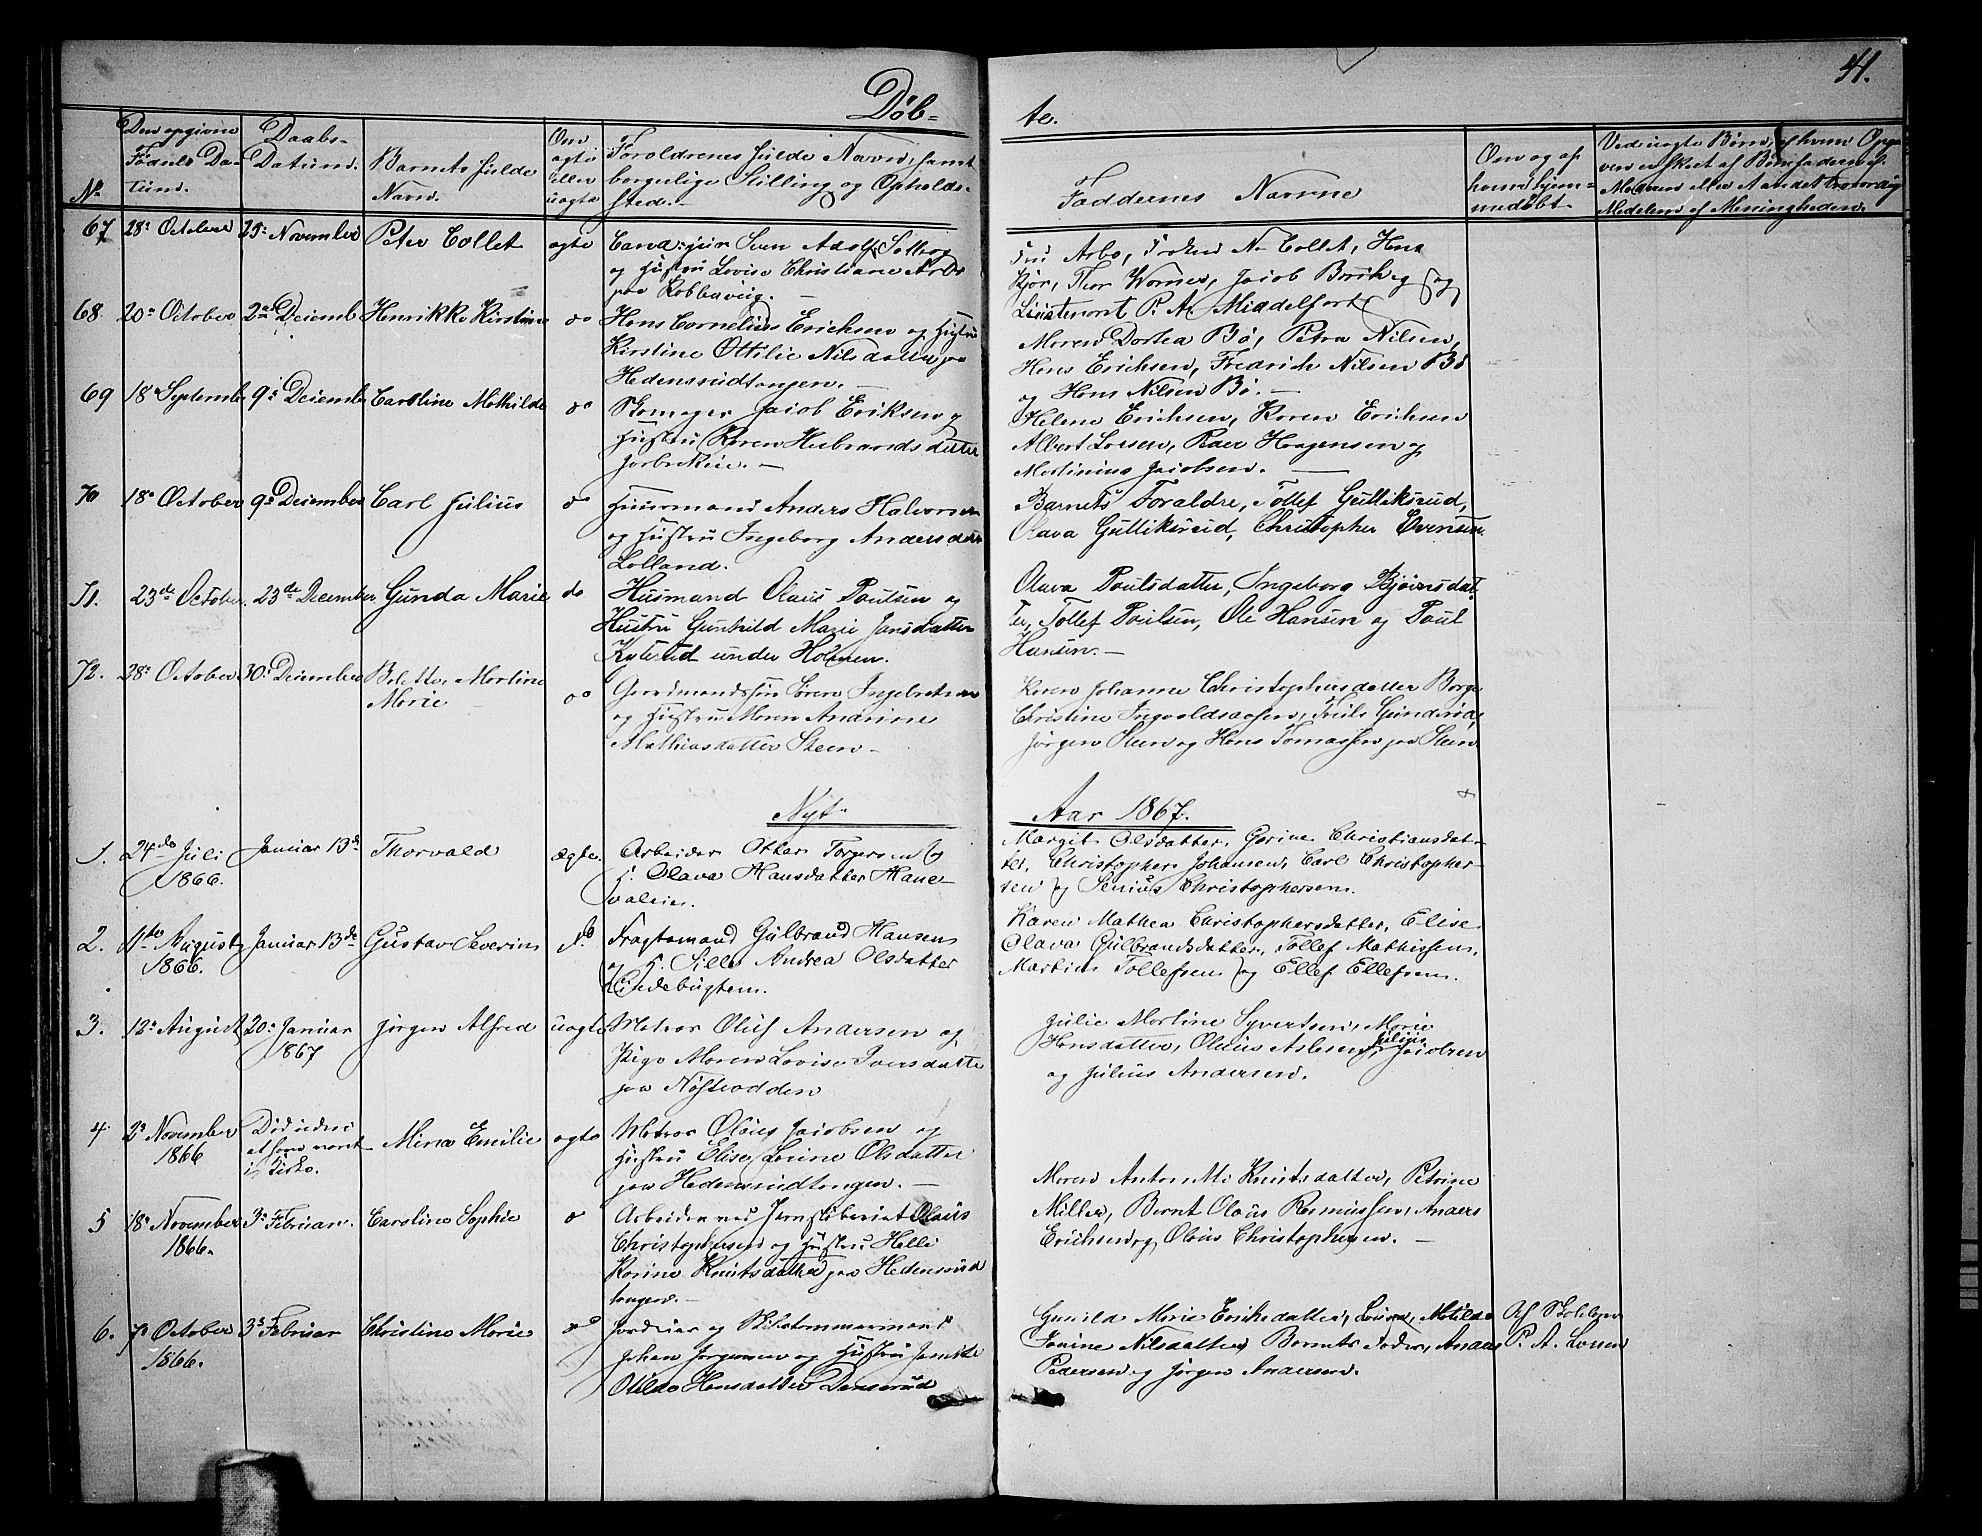 41.
Døb-
te.
No.
Den opgivne
Fødsels Da-
tum.
Daabs-
Datum.
Barnets fulde
Navn.
Om
ægte
eller
uægte
Forældrenes fulde Navn, samt
borgerlige Stilling og Opholds-
sted.
Faddernes Navne
Om og af
hvem hjem-
medøbt.
Ved uægte Børn, af hvem Opga-
ven er skeet af Barnefaderen af
Moderen eller Andet troværdig
Medlem af Menigheden.
67 28. October 25. November Peter Collet ægte
Cand. jur. Sven Adolf Solberg
og Hustru Lovise Christiane Arbo
paa
Fru Arbo, Frøken N. Collet, Herr
Kjør, Thor Worner, Jacob Borch og
Lieutenant P. A. Middelfart
68 20. October 2. Decemb Henrikke Kirstine do
Hans Cornelius Erichsen og Hustru
Kirstine Ottilie Nilsdatter paa
Hedensrudtangen.
Moren Dortea Bø, Petra Nilsen,
Hans Erichsen, Fredrich Nilsen Bø
og Hans Nilsen Bø.
69 18 Septemb 9. Decemb Caroline Mathilde do
Skomager Jacob Eriksen og
Hustru Karen Helbrandsdatter
Helene Erichsen, Karen Erichsen
Albert Larsen, Peder Haagensen og
Martinius Jacobsen.
70 18. October 9. December Carl Julius do
Huusmand Anders Halvorsen
og Hustru Ingeborg Andersdatter
Lolland.
Barnets Forældre, Tollef Gulliksrud,
Olava Gulliksrud, Christopher Evensen
71. 23de October. 23de December. Gunda Marie do
Husmand Olaus Paulsen og
Hustru Gunhild Marie Jansdatter
under Holmen.
Olava Poulsdatter, Ingeborg Bjørnsdat-
ter, Tollef Poulsen, Ole Hansen og Poul
Hansen.
72. 28. October 30. December Beletta Martine
Marie do
Gaardmandssøn Søren Ingebretsen
og Hustru Maren Andrine
Mathiasdatter Steen
Karen Johanne Christophersdatter Borge
Christine Ingvoldsen, Truls Gunderød,
Jørgen Steen og Hans Tomassen paa Steen
Nyt
Aar 1867.
1. 24de Juli
1866. Januar 13de Thorvald ægte.
Arbeider Otter Torgersen og
H. Olava Hansdatter Hane-
valeien.
Margit Olsdatter, Gorine Christiansdat-
ter, Christopher Johansen, Carl Christopher-
sen og Senius Christophersen.
2. 11te August
1866. Januar 13de Gustav Severin do
Fragtemand Gulbrand Hansen
og H. Sille Andrea Olsdatter
Lindebugten.
Karen Mathea Christophersdatter, Elise
Olava Gulbrandsdatter, Tollef Mathissen,
Martin Tollefsen og Ellef Ellefsen.
3. 12. August 20. Januar
1867 Jørgen Alfred uægte
Matros Oluf Andersen og
Pige Maren Lovise Iversdatter
paa Nøsteodden
Julie Martine Syvertsen, Marie
Hansdatter, Olaus Aslesen, Julius Jacobsen
og Julius Andersen.
4 2. November
1866 Død inden
at have været
i Kirke. Mina Emilie ægte
Matros Olaus Jacobsen og
Hustru Elise Lovine Olsdatter
paa Hedensrudtangen.
5 18. November
1866. 3. Februar. Caroline Sophie do
Arbeider ved Jernstøberiet Olaus
Christophersen og Hustru Helle
Karine Knutsdatter paa Hedensrud
tangen.
Maren Anton Mi Knutsdatter, Petrine
Miller, Bernt Olaus Rasmussen, Anders
Erichsen og Olaus Christophersen.
6. 7. October
1866. 3. Februar Christine Marie do
Jordeier og Skibstømmermand
Johan Jørgensen og Hustru
Otilde Hansdatter Denserud
Gunilde Marie Eriksdatter, Matilde
Janine Nilsdatter Barnets Fader, Anders
Pedersen og Jørgen Andersen.
Af Skolelærer
P. A. Lonne